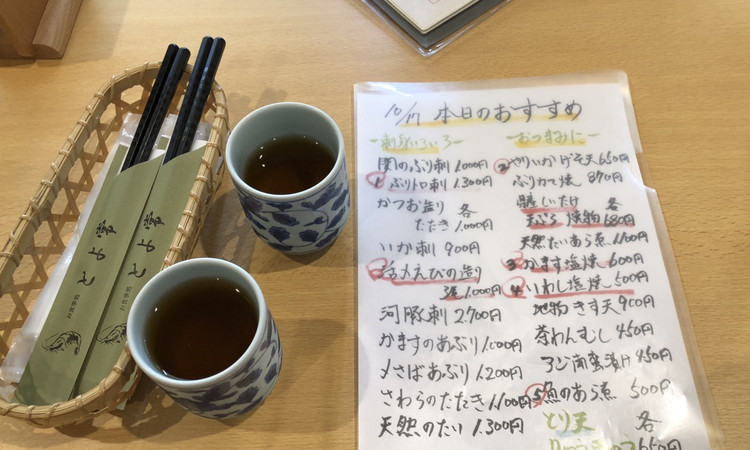 とよ常
とよ常
10/17 本日のおすすめ
刺身いろいろ
関のぶり刺 1.000円
1 ぶりトロ刺 1.300円
かつお造り 各
たたき 1.000円
いか刺 900円
活〆えびの造り
1.000円
河豚刺 2.700円
かますのあぶり 1.000円
〆さばあぶり 1.200円
さわらのたたき 1.100円
天然のたい 1.300円
おつまみに
2 やりいかげそ天 650円
ぶりカマ焼 870円
しいたけ 各
天ぷら 焼物 680円
天然たいあら煮 1.100円
3 かます塩焼 600円
4 いわし塩焼 500円
地物きす天 900円
茶わんむし 450円
アジ南蛮漬け 450円
5 魚のあら煮 500円
とり天 各
650円